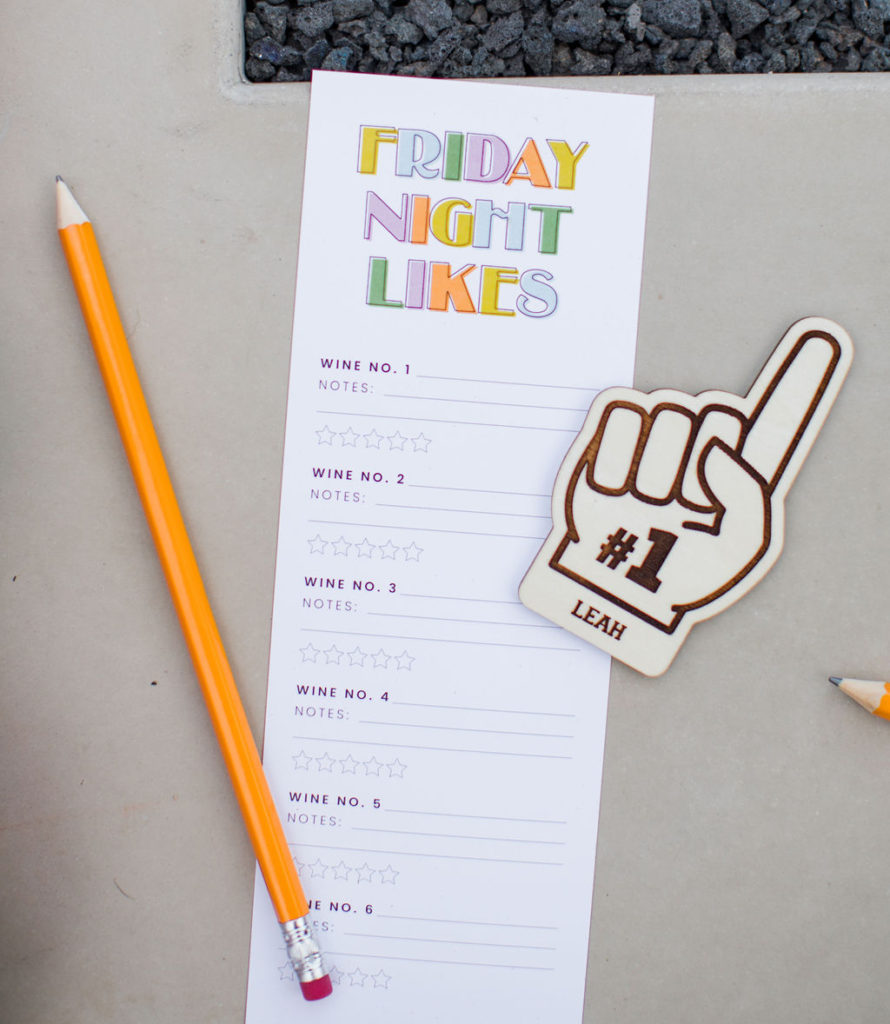 FRIDAY
NIGHT
LIKES
WINE NO. 1
NOTES:
WINE NO. 2
NOTES:
WINE NO. 3
NOTES:
WINE NO. 4
NOTES:
WINE NO. 5
NOTES:
NE NO. 6
ES:
#1
LEAH